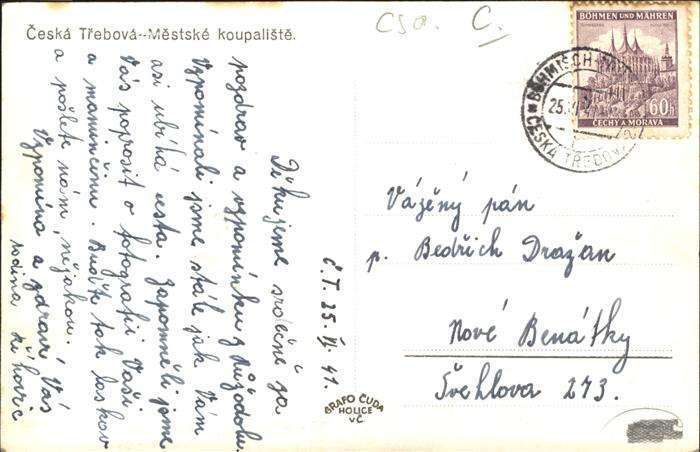 Česká Třebová--Městské koupaliště.
Čsa. C.
BÖHMEN UND MÄHREN
60 h
ČECHY A MORAVA
ČESKÁ TŘEBOVÁ
25.
Děkujeme srdečně za
pozdrav a vzpomínku z
Vzpomínali jsme stále jak Vám
asi ubíhá cesta. Zapomněli jsme
Vás poprosit o fotografii Vaši
a maminčinu. Buďte tak laskav
a pošlete nám nějakou.
Vzpomíná a zdraví Vás
rodina
Č.T. 25. VI. 41.
GRAFO ČUDA
HOLICE
v Č.
Vážený pán
p. Bedřich Dražan
Nové Benátky
Švehlova 273.